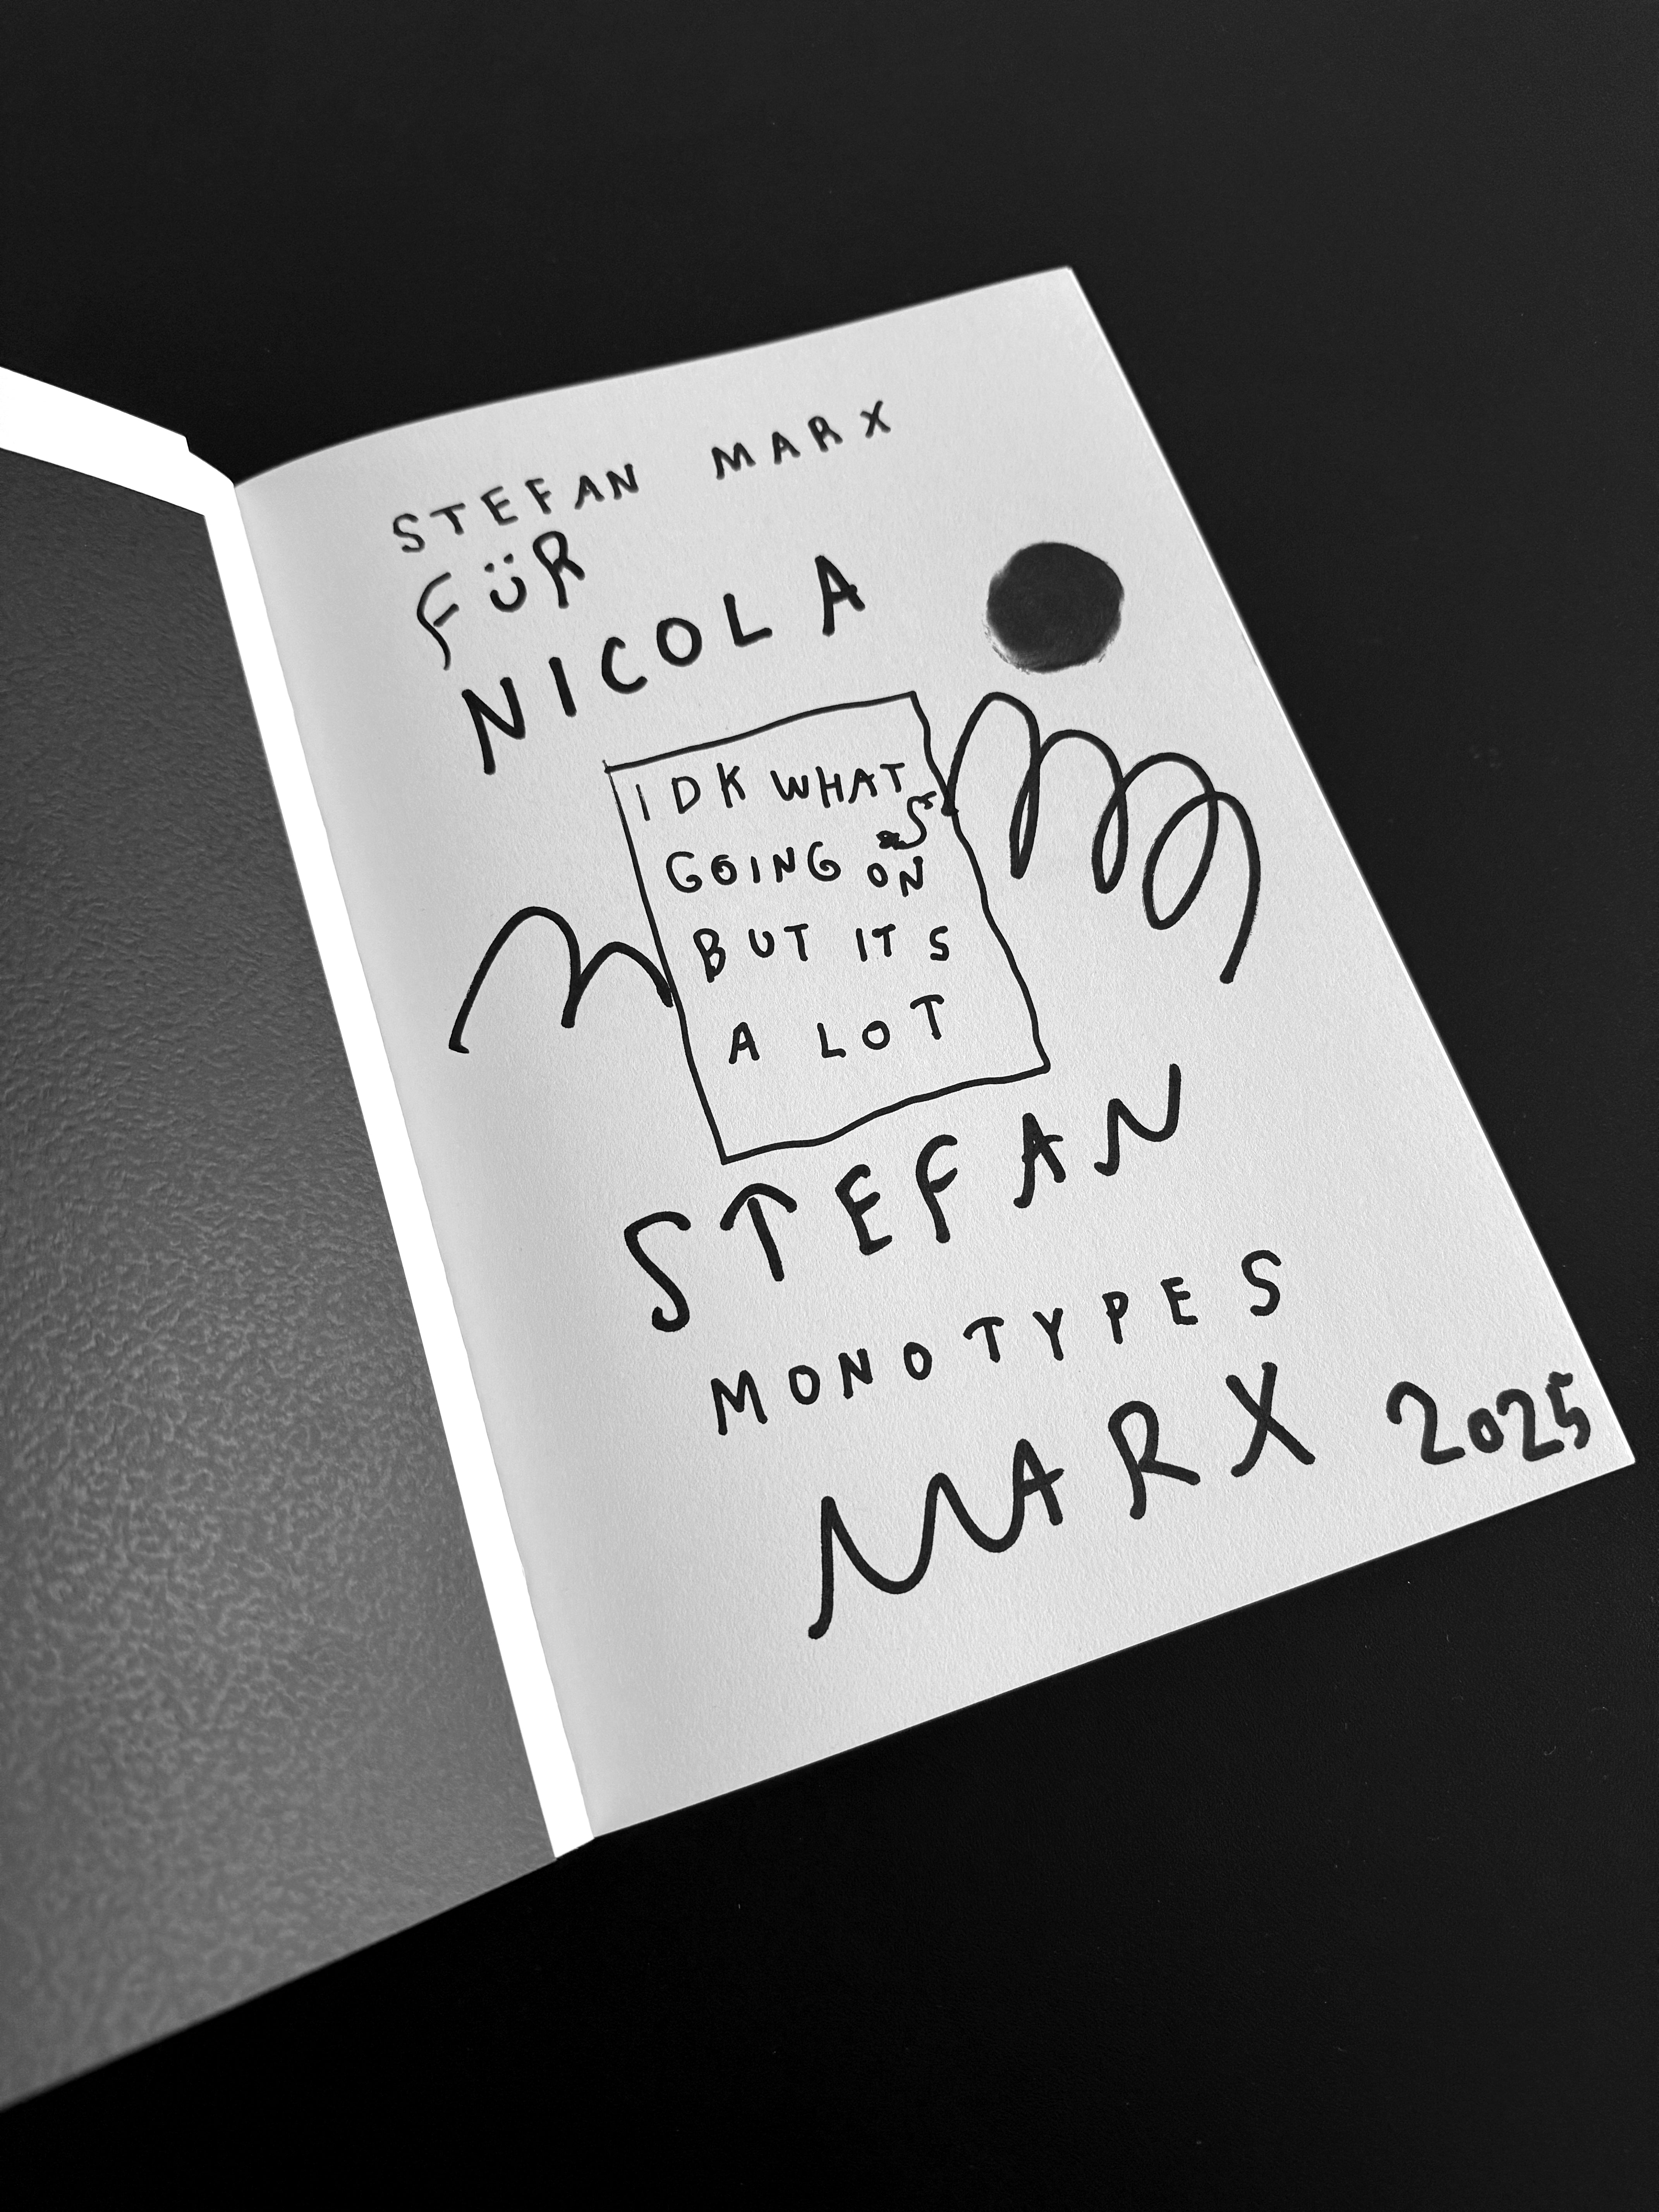 STEFAN MARX
FÜR
NICOLA
IDK WHATS
GOING ON
BUT ITS
A LOT
STEFAN
MONOTYPES
MARX 2025